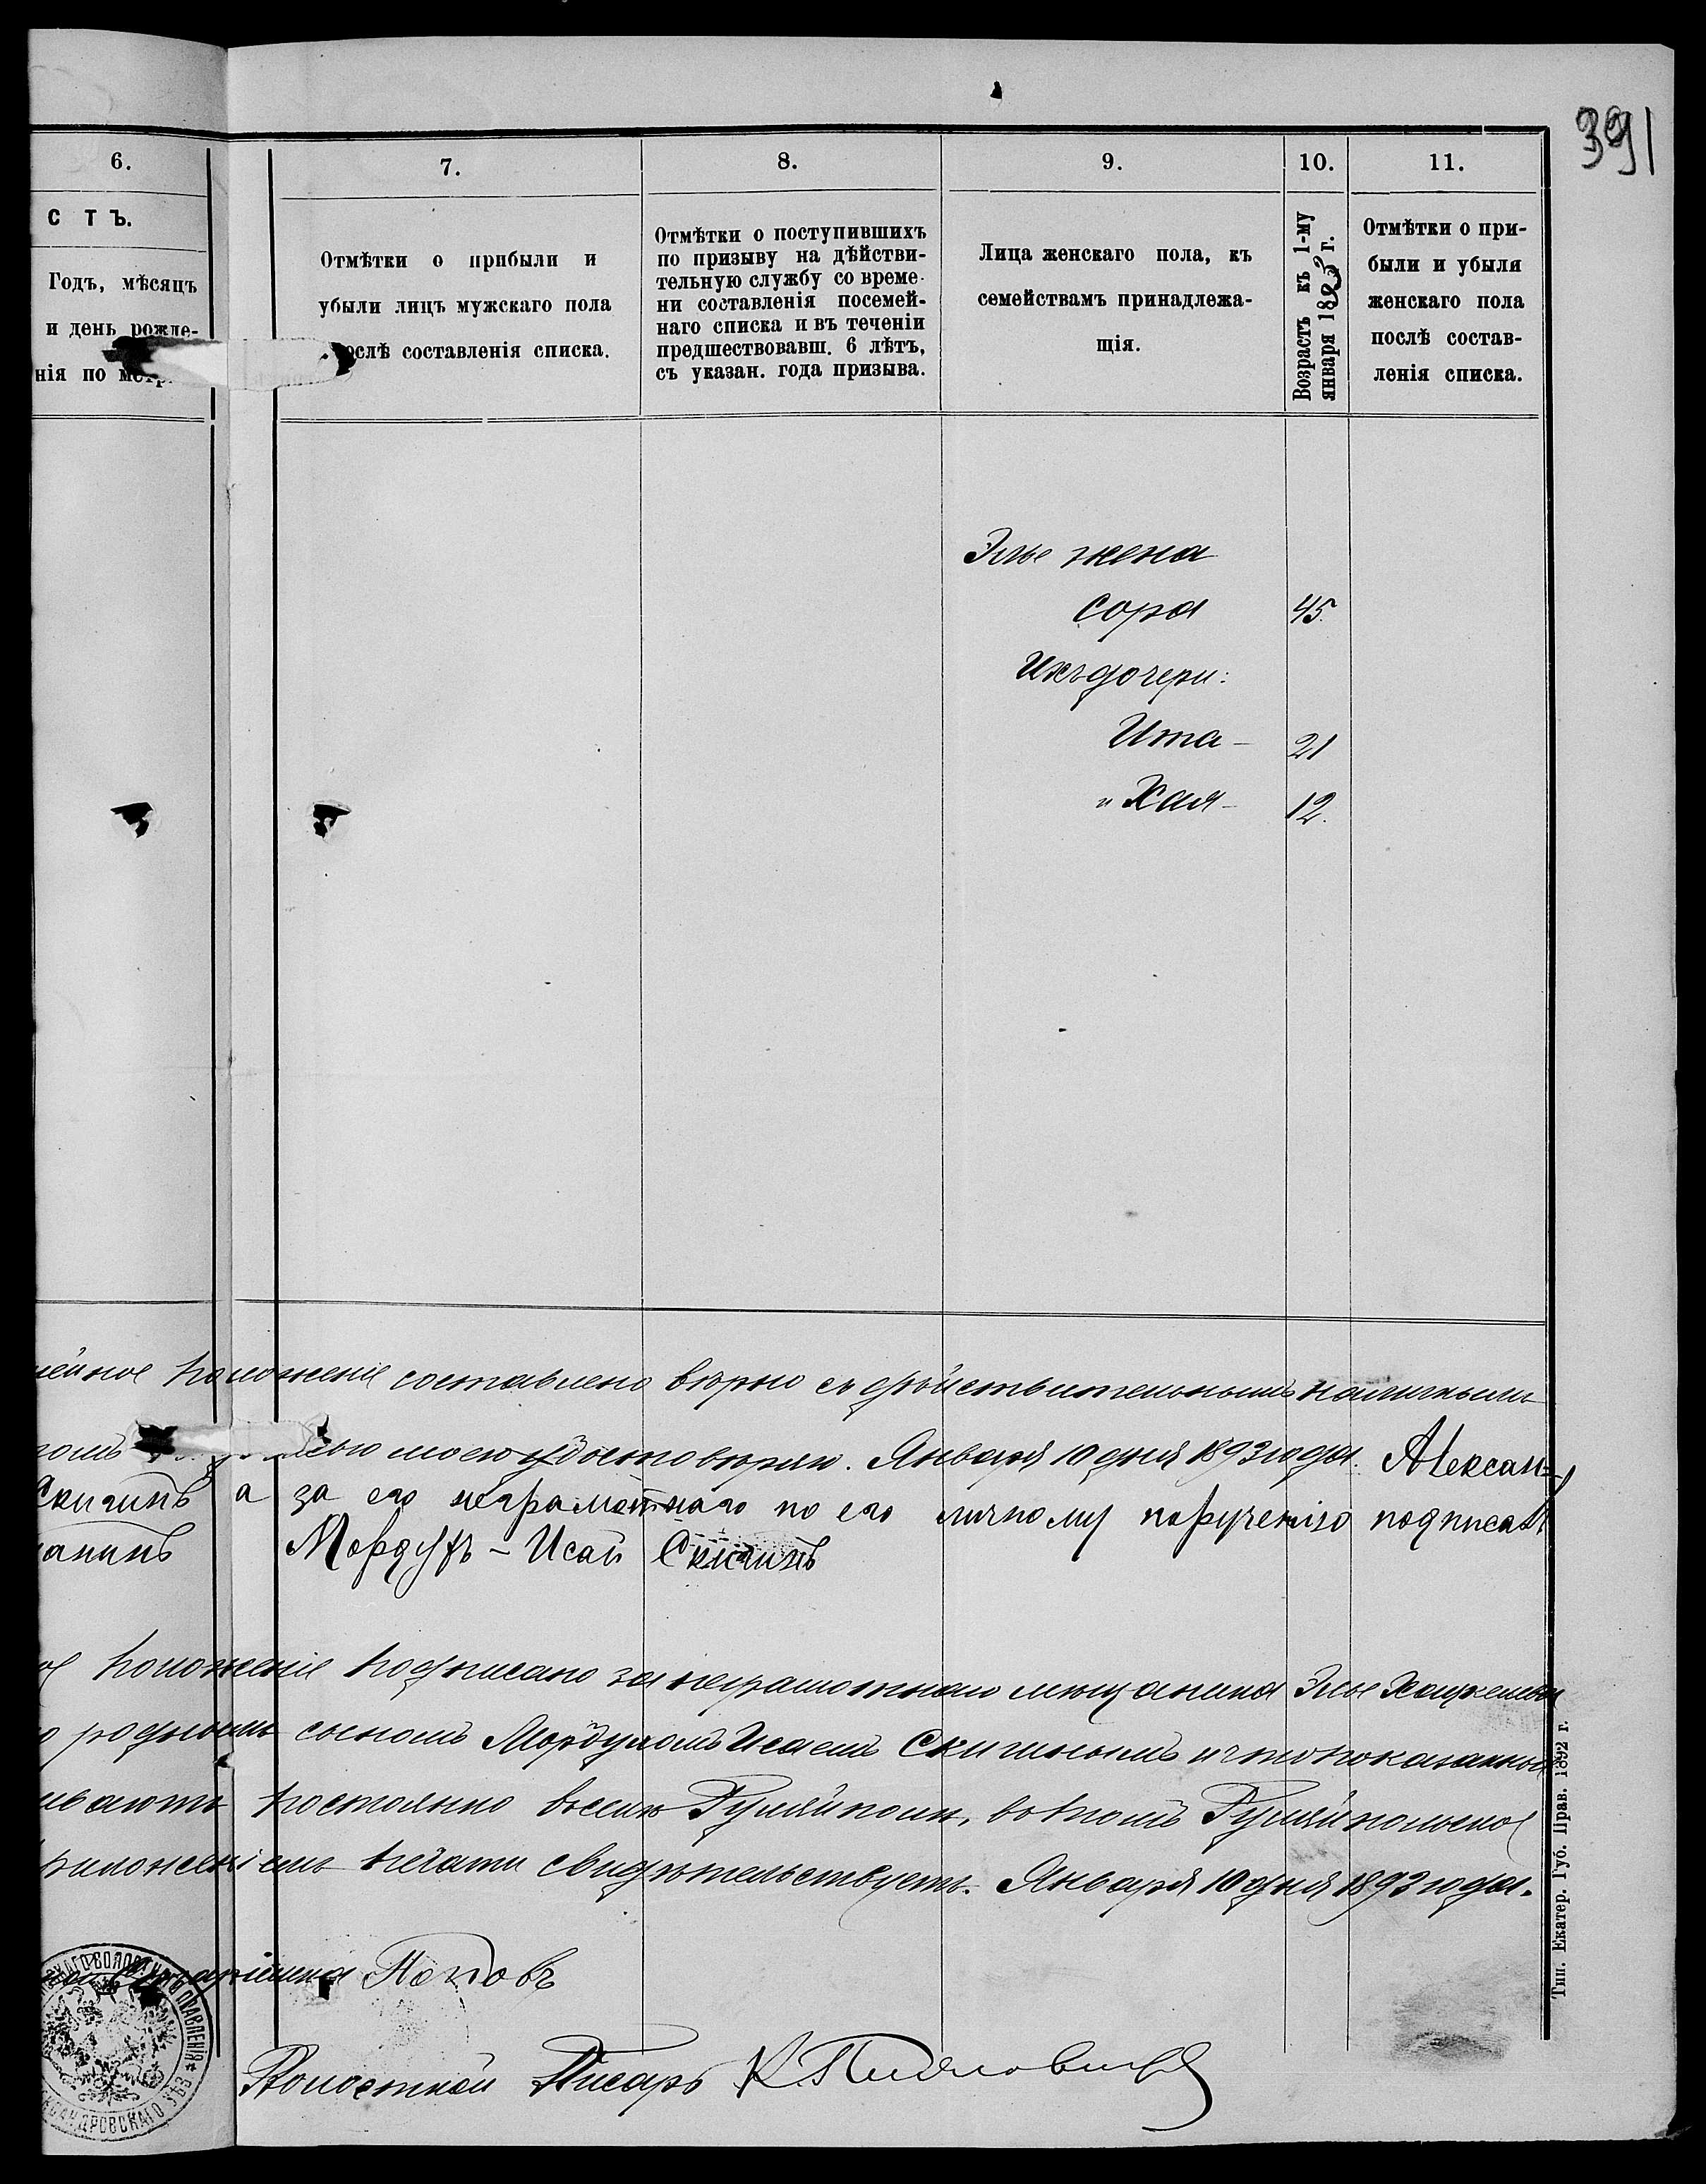 391
6.
7.
8.
9.
10.
11.
С Т Ъ.
Годъ, мѣсяцъ
и день рожде-
нія по метр
Отмѣтки о прибыли и
убыли лицъ мужскаго пола
послѣ составленія списка.
Отмѣтки о поступившихъ
по призыву на дѣйстви-
тельную службу со време-
ни составленія посемей-
наго списка и въ теченіи
предшествовавш. 6 лѣтъ,
съ указан. года призыва.
Лица женскаго пола, къ
семействамъ принадлежа-
щія.
Возрастъ къ 1-му
января 1893 г.
Отмѣтки о при-
были и убыля
женскаго пола
послѣ состав-
ленія списка.
Элье жена
Сора 45.
Ихъ дочери:
Ита - 21
и Хая - 12.
мейное положеніе составлено вѣрно съ дѣйствительнымъ наличнымъ
моею удостовѣряю. Января 10 дня 1893 года. Александ=
Скигинъ а за его неграмотнаго по его личному порученію подписалъ
анинъ Мордухъ - Исай Скигинъ
положеніе подписано за неграмотнаго мѣщанина Элье
роднымъ сыномъ Мордухомъ Исаемъ Скигинымъ и что показанные
ваютъ постоянно въ селѣ Гуляйполѣ, въ томъ Гуляйпольское
приложеніемъ печати свидѣтельствуетъ. Января 10 дня 1893 года.
Старшина Поповъ
Волостной Писарь К.
СКАГО ВОЛОСТНАГО ПРАВЛЕНІЯ *
КСАНДРОВСКАГО УѢЗ
Тип. Екатер. Губ. Прав. 1892 г.